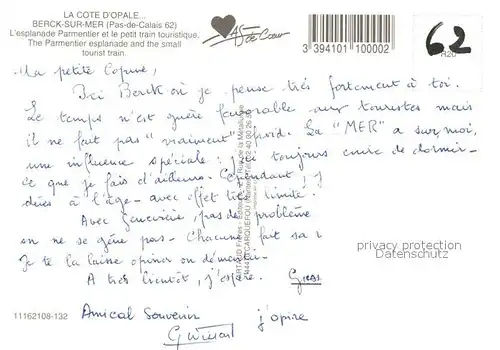 LA COTE D'OPALE...
BERCK-SUR-MER (Pas-de-Calais 62)
L'esplanade Parmentier et le petit train touristique.
The Parmentier esplanade and the small
tourist train.
As de Cœur
3 394101 100002
62
Ma petite Copine,
Ici Berck où je pense très fortement à toi.
Le temps n'est guère favorable aux touristes mais
il ne fait pas "vraiment" froid. La "MER" a sur moi,
une influence spéciale: j'ai toujours envie de dormir -
ce que je fais d'ailleurs. Cependant j
dées à l'age - avec effet très limité!
Avec Geneviève, pas de problème
on ne se gêne pas - Chacune fait sa
Je te la laisse opiner ou démentir -
A très bientôt, j'espère.
privacy protection
Datenschutz
11162108-132
Amical Souvenir
j'opine